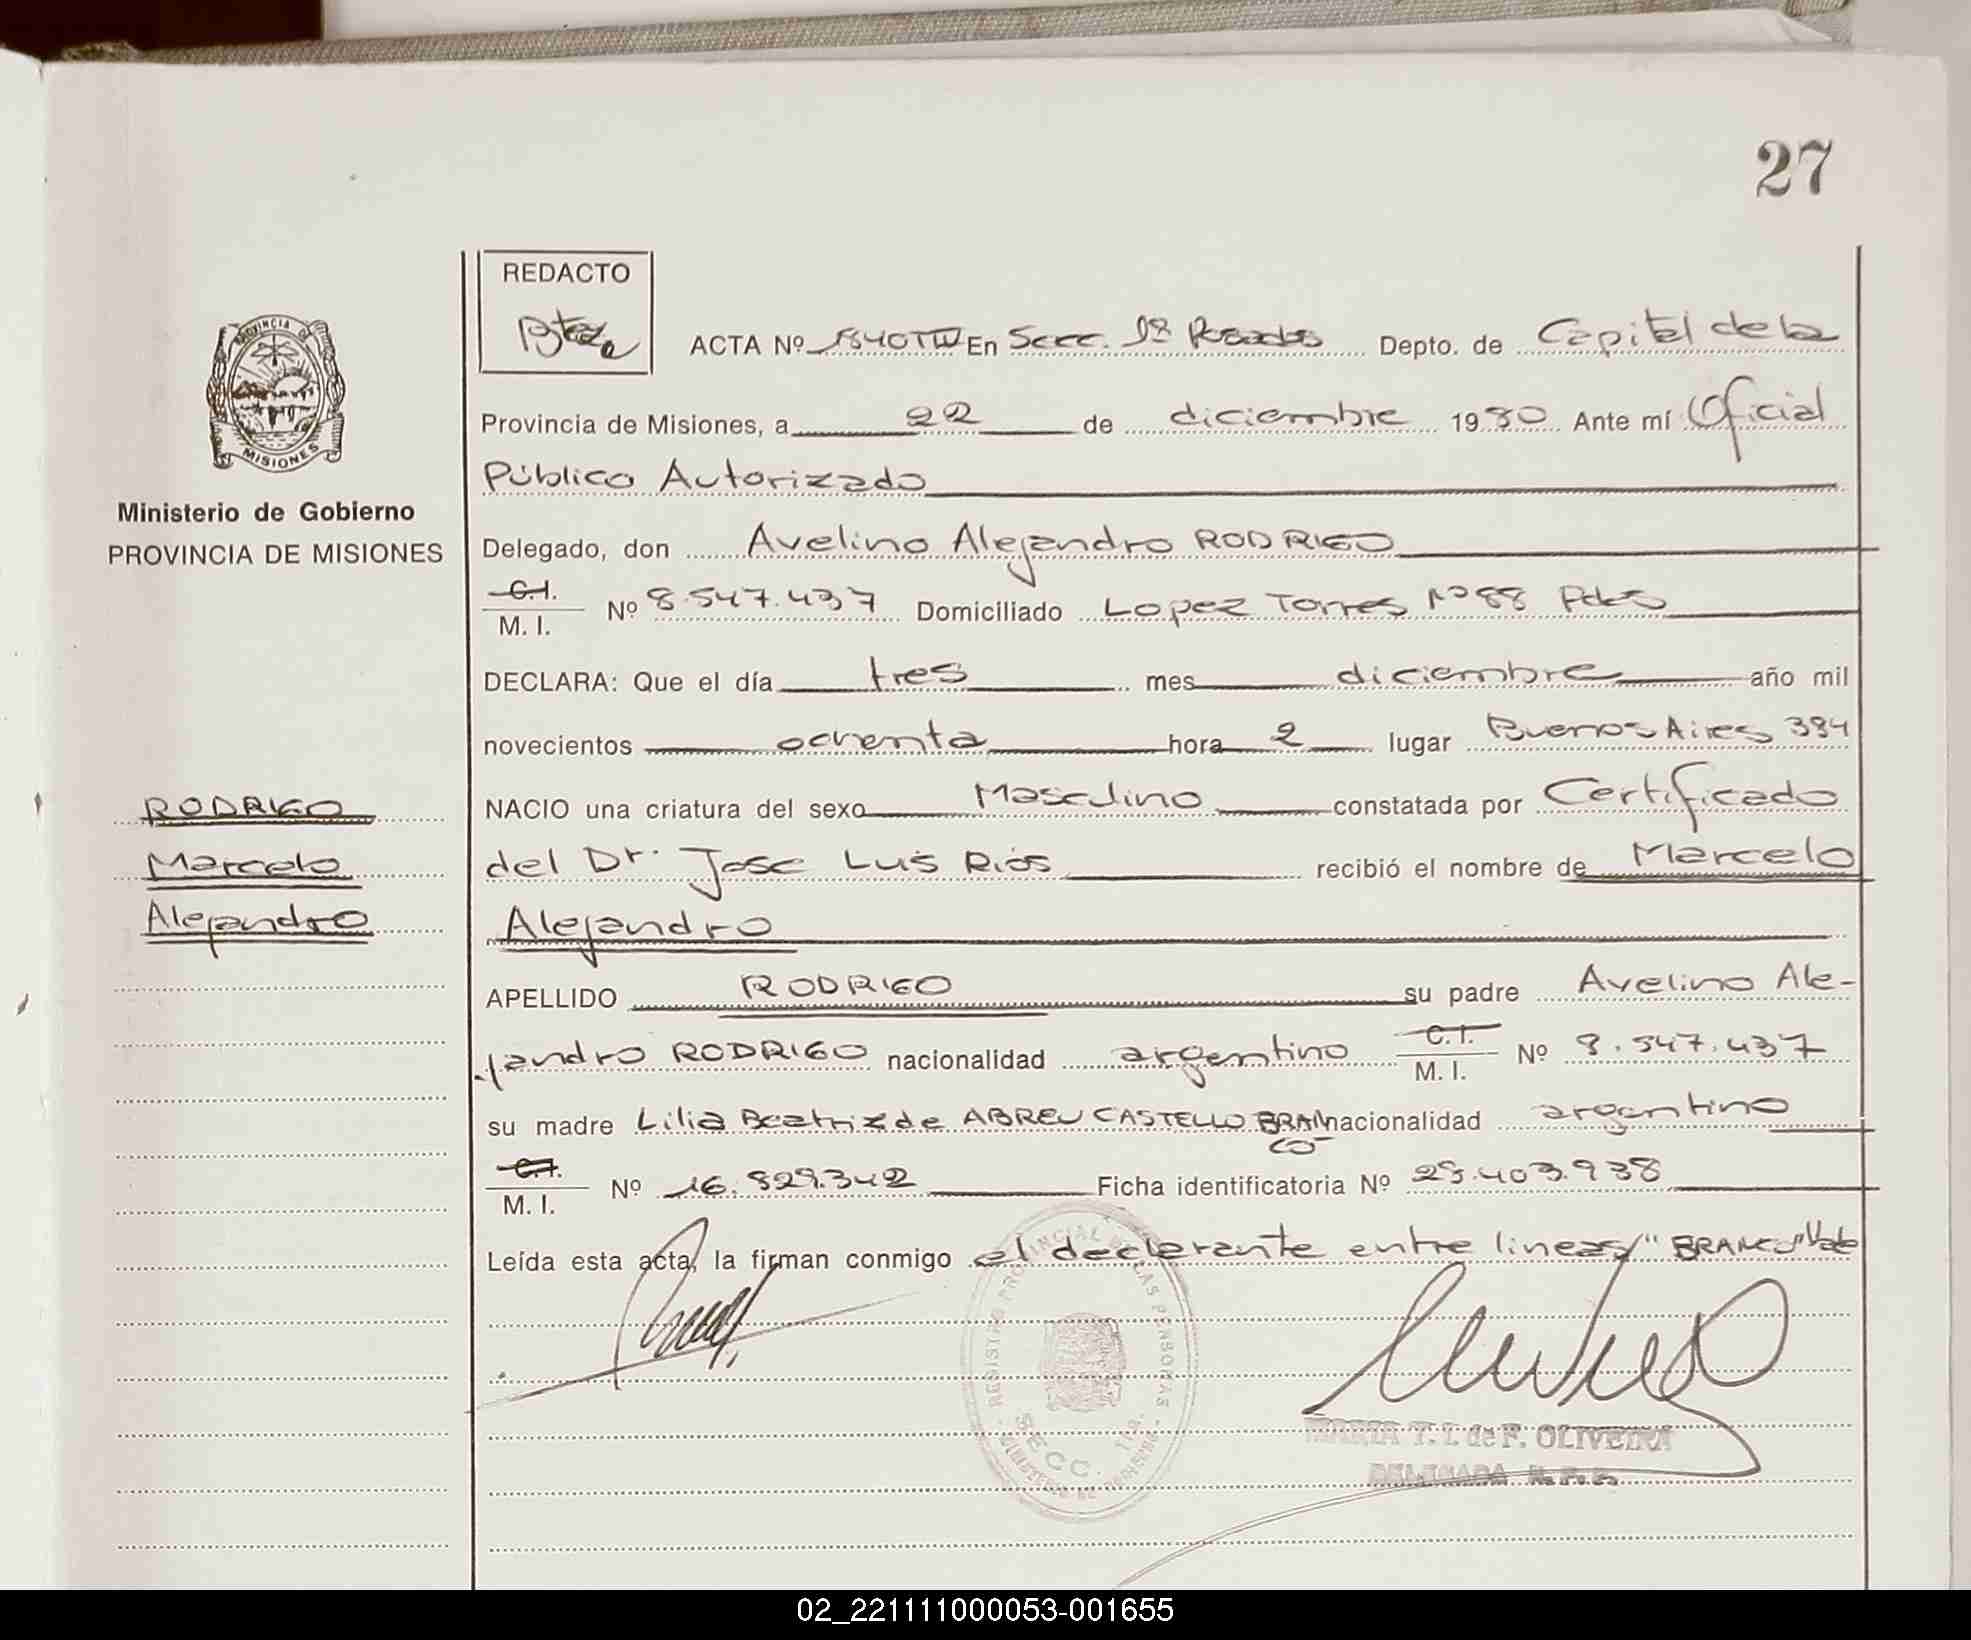 27
REDACTO
PROVINCIA DE
MISIONES
Ministerio de Gobierno
PROVINCIA DE MISIONES
ACTA Nº 1840 TIV En Secc. 1ª Posadas Depto. de Capital de la
Provincia de Misiones, a 22 de diciembre 1980 Ante mí Oficial
Público Autorizado
Delegado, don Avelino Alejandro RODRIGO
C.I.
M. I. Nº 8.547.437 Domiciliado Lopez Torres Nº 88 Pdas
DECLARA: Que el día tres mes diciembre año mil
novecientos ochenta hora 2 lugar Buenos Aires 394
NACIO una criatura del sexo Masculino constatada por Certificado
del Dr. Jose Luis Rios recibió el nombre de Marcelo
Alejandro
APELLIDO RODRIGO su padre Avelino Ale-
jandro RODRIGO nacionalidad argentino C.I.
M. I. Nº 8.547.437
su madre Lilia Beatriz de ABREU CASTELLO BRAN nacionalidad argentino
CO
C.I.
M. I. Nº 16.829.342 Ficha identificatoria Nº 28.403.938
Leída esta acta, la firman conmigo el declarante entre lineas "BRANCO" Vale
RODRIGO
Marcelo
Alejandro
REGISTRO PROVINCIAL DE LAS PERSONAS
SECC. 1ra.
MARIA T. I. de F. OLIVEIRA
DELEGADA R. P. P.
02_221111000053-001655